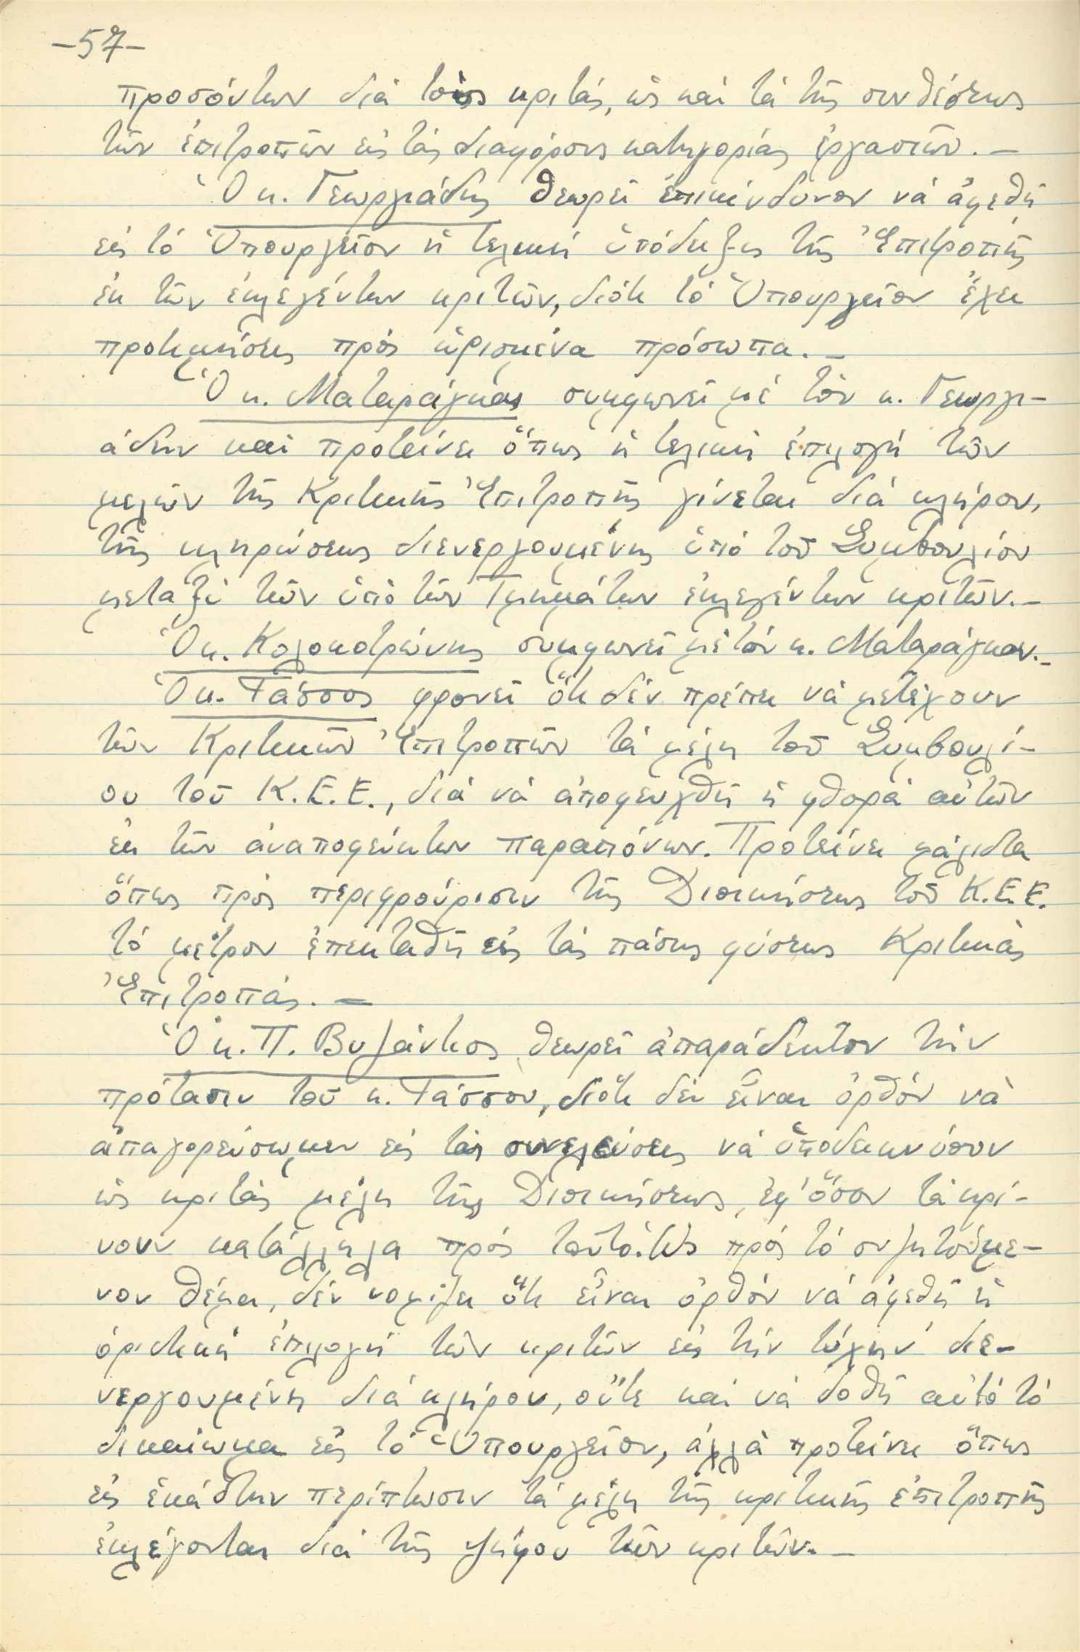 -57-
προσόντων διά τούς κριτάς, ὡς καί τά τῆς συνθέσεως
τῶν ἐπιτροπῶν εἰς τάς διαφόρους κατηγορίας ἐργασιῶν.-
Ὁ κ. Γεωργιάδης θεωρεῖ ἐπικίνδυνον νά ἀφεθῆ
εἰς τό Ὑπουργεῖον ἡ τελική ὑπόδειξις τῆς Ἐπιτροπῆς
ἐκ τῶν ἐκλεγέντων κριτῶν, διότι τό Ὑπουργεῖον ἔχει
προτιμήσεις πρός ὡρισμένα πρόσωπα.-
Ὁ κ. Ματαράγκας συμφωνεῖ μέ τόν κ. Γεωργι-
άδην καί προτείνει ὅπως ἡ τελική ἐπιλογή τῶν
μελῶν τῆς Κριτικῆς Ἐπιτροπῆς γίνεται διά κλήρου,
τῆς κληρώσεως διενεργουμένης ὑπό τοῦ Συμβουλίου
μεταξύ τῶν ὑπό τῶν Τμημάτων ἐκλεγέντων κριτῶν.-
Ὁ κ. Κολοκοτρώνης συμφωνεῖ μέ τόν κ. Ματαράγκαν.-
Ὁ κ. Τάσσος φρονεῖ ὅτι δέν πρέπει νά μετέχουν
τῶν Κριτικῶν Ἐπιτροπῶν τά μέλη τοῦ Συμβουλί-
ου τοῦ Κ.Ε.Ε., διά νά ἀποφευχθῆ ἡ φθορά αὐτῶν
ἐκ τῶν ἀναποφεύκτων παραπόνων. Προτείνει μάλιστα
ὅπως πρός περιφρούρισιν τῆς Διοικήσεως τοῦ Κ.Ε.Ε.
τό μέτρον ἐπεκταθῆ εἰς τάς πάσης φύσεως Κριτικάς
Ἐπιτροπάς.-
Ὁ κ. Π. Βυζάντιος θεωρεῖ ἀπαράδεκτον τήν
πρότασιν τοῦ κ. Τάσσου, διότι δέν εἶναι ὀρθόν νά
ἀπαγορεύσωμεν εἰς τάς συνελεύσεις νά ὑποδεικνύουν
ὡς κριτάς μέλη τῆς Διοικήσεως, ἐφ' ὅσον τά κρί-
νουν κατάλληλα πρός τοῦτο. Ὡς πρός τό συζητούμε-
νον θέμα, δέν νομίζει ὅτι εἶναι ὀρθόν νά ἀφεθῆ ἡ
ὁριστική ἐπιλογή τῶν κριτῶν εἰς τήν τύχην διε-
νεργουμένη διά κλήρου, οὔτε καί νά δοθῆ αὐτό τό
δικαίωμα εἰς τό Ὑπουργεῖον, ἀλλά προτείνει ὅπως
εἰς ἑκάστην περίπτωσιν τά μέλη τῆς κριτικῆς ἐπιτροπῆς
ἐκλέγονται διά τῆς ψήφου τῶν κριτῶν.-